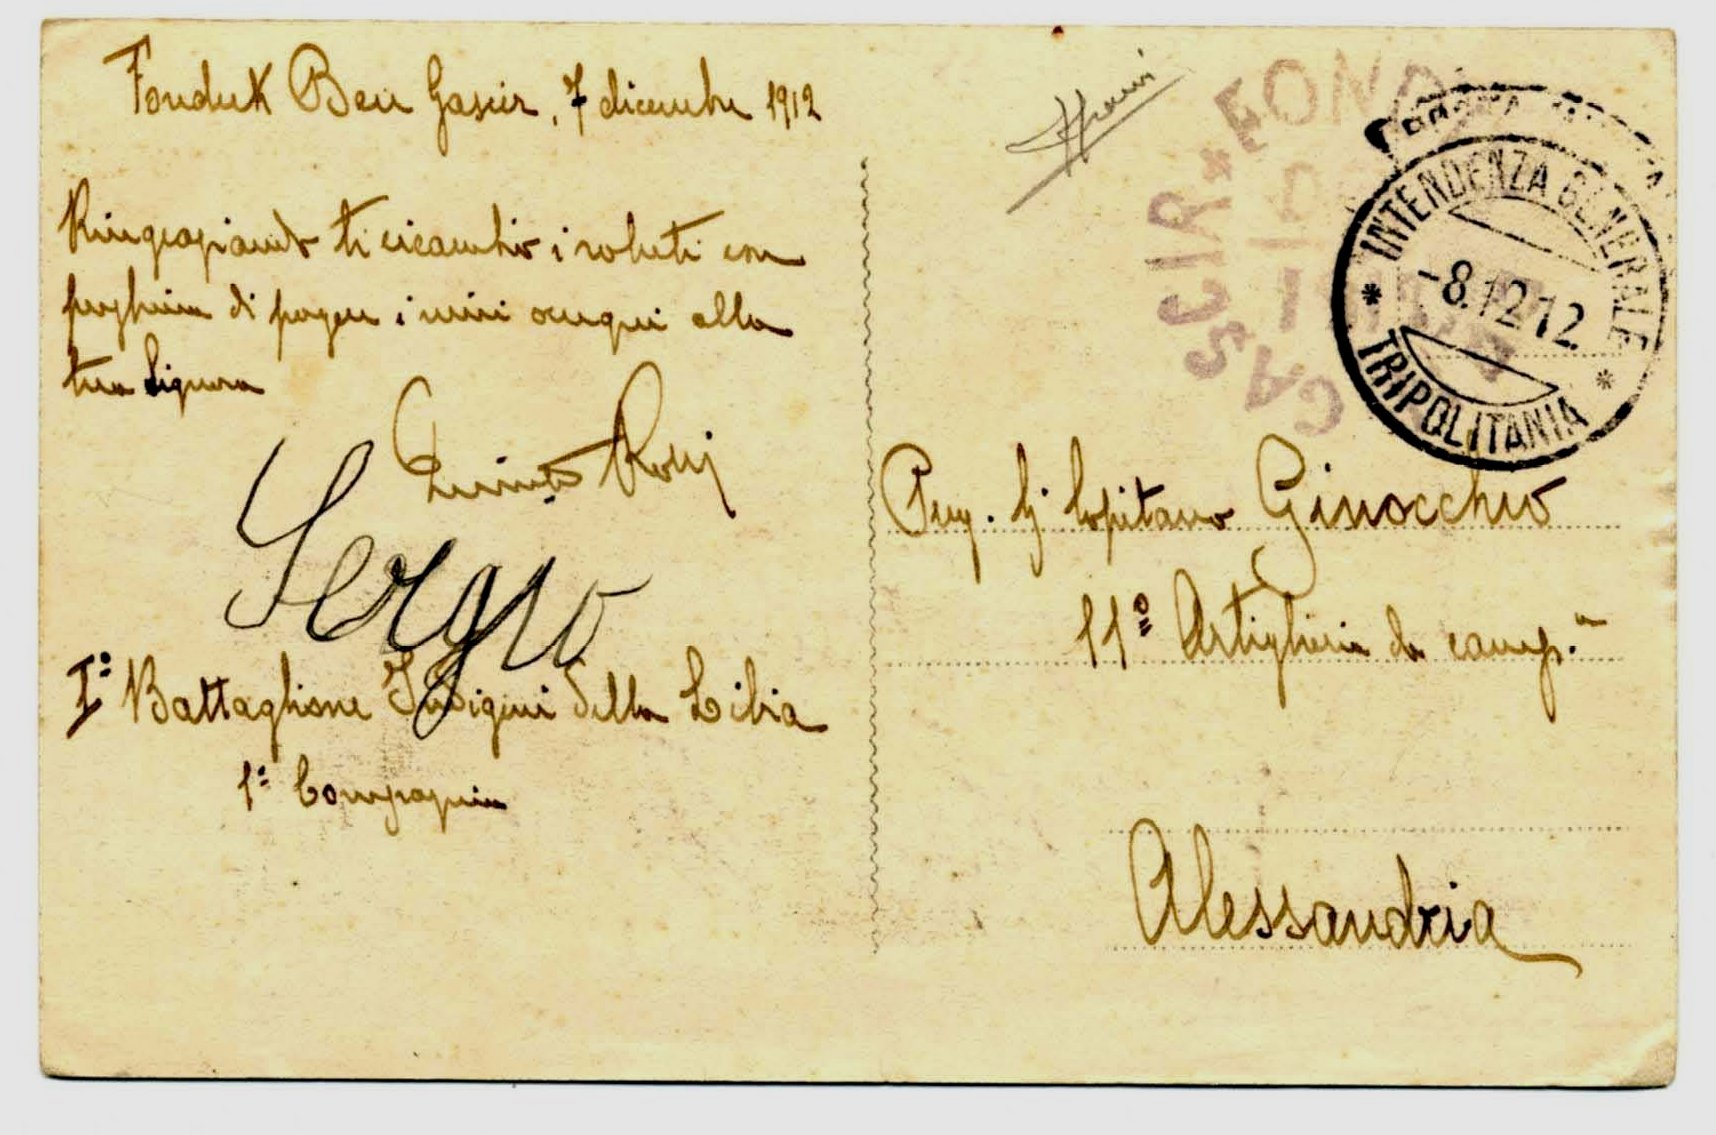 Fonduk Ben Gascir, 7 dicembre 1912
Ringraziando ti ricambio i saluti con
preghiera di porgere i miei ossequi alla
tua Signora
Rossi
Sergio
I° Battaglione Indigeni della Libia
1ª Compagnia
FOND
GASCIR *
INTENDENZA GENERALE
-8.12.12.
* TRIPOLITANIA *
Capitano Ginocchio
11° Artiglieria da camp.ª
Alessandria